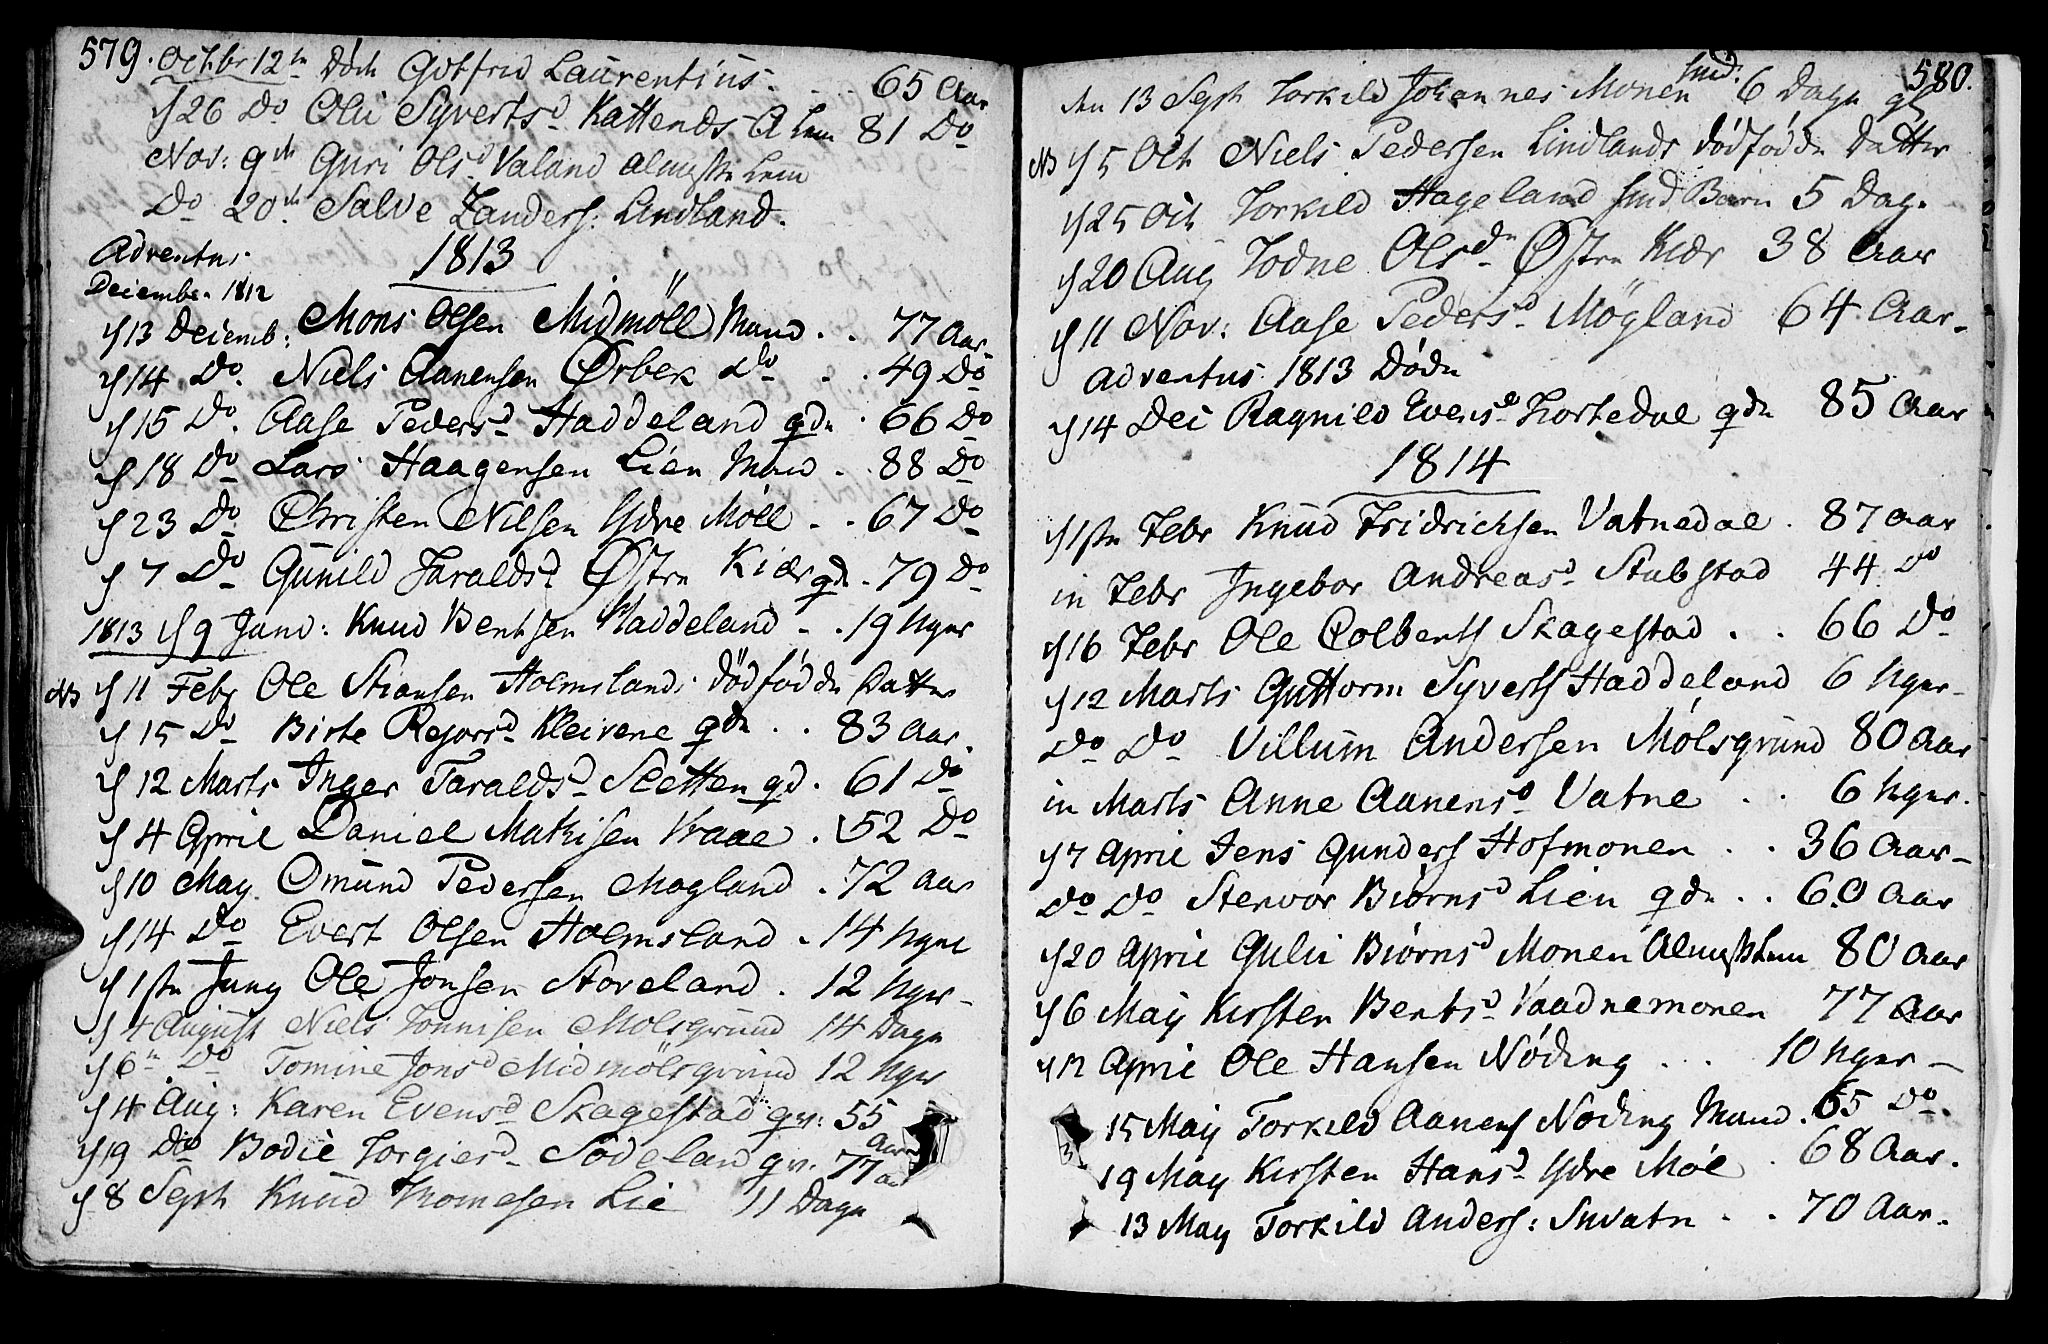 579.
Octbr 12te Døde Gotfrid Laurentius. . . 65 Aar
d 26 Do Oli Syvertsd Kattends A Lem 81 Do
Nov: 9de Guri Olsd Valand Almsste Lem
Do 20de Salve Zanders: Lindland.
Adventus
Decembr. 1812
1813
d 13 Decemb: Mons Olsen Midmöll Mand . . 77 Aar.
d 14 Do. Niels Aanensen Ørbek Do . . 49 Do
d 15 Do. Aase Pedersd Haddeland gdn . 66 Do
d 18 Do Lars Haagensen Lien Mand . 88 Do
d 23 Do Christen Nilsen Ydre Møll . . 67 Do
d 7 Do Gunild Taraldsd Østre Kiær gdn . 79 Do
1813 d 9 Janv: Knud Bentsen Haddeland . . 19 Uger
NB d 11 Febr Ole Stiansen Holmslands dödfödde Datter
d 15 Do Birte Rejorsd Kleivene gdn . . 83 Aar.
d 12 Marts Inger Taraldsd Sletten gd. 61 Do
d 4 April Daniel Mathisen Vraal . 52 Do
d 10 May. Omund Pedersen Mogland . 72 Aar
d 14 Do Evert Olsen Holmsland . 14 Uger
d 1ste Juny Ole Jonsen Stoveland . 12 Uger
d 4 August Niels Tonnisen Molsgrund 14 Dage
d 6te Do Tomine Jonsd Midmölsgrund 12 Uger
d 4 Aug: Karen Evensd Skagestad gv: 55 Aar
d 19 Do Bodil Torgiersd Södeland gv. 77 a
d 8 Septr Knud Thomesen Lie 11 Dage
580.
den 13 Septr Torkild Johannes Monen Smd. 6 Dage gl
NB d 5 Oct Niels Pedersen Lindlands dödfödde Datter
d 25 Oct Torkild Hageland Smd Barn 5 Dag.
d 20 Aug Todne Olsdr Østre Kiær 38 Aar
d 11 Nov: Aase Pedersd Mögland 64 Aar.
Adventus 1813 Døde
d 14 Dec Ragnild Evensd Tortedal gdn 85 Aar
1814
d 1ste Febr Knud Fridrichsen Vatnedal . 87 Aar
in Febr Ingebor Andreasd Stubstad 44 Do
d 16 Febr Ole Colbens Skagestad . . 66 Do
d 12 Marts Guttorm Syverts Haddeland 6 Uger
Do Do Villum Andersen Mölsgrund 80 Aar
in Marts Anne Aanensd Vatne . . 6 Uger.
d 7 April Jens Gunders Hofmonen . . 36 Aar
Do Do Stenvor Biörnsd Lien gdn . . 60 Aar
d 20 April Guli Biörnsd Monen Almsste Lem 80 Aar
d 6 May Kirsten Bentsd Vaadnemonen 77 Aar
d 12 April Ole Hansen Nöding . . . 10 Uger
15 May Torkild Aanens Noding Mand . 65 Do.
19 May Kirsten Hansd Ydre Möl . 68 Aar.
13 May Torkild Anders: Suvatn . . 70 Aar.